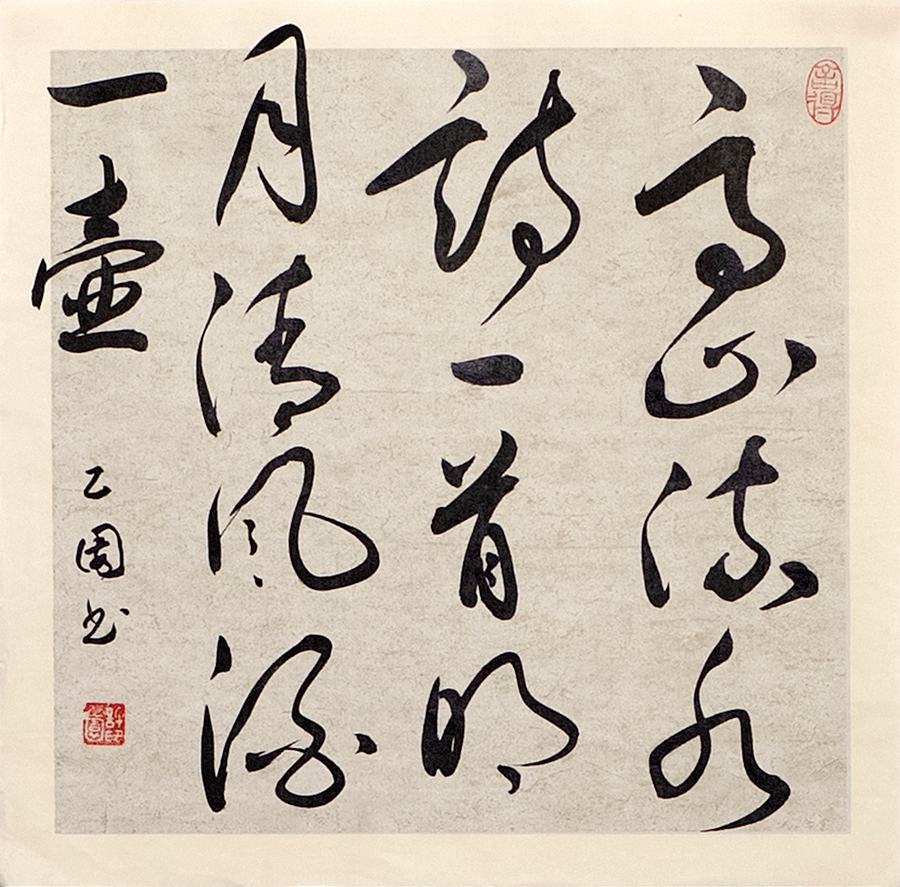 高山流水
詩一首明
月清風酒
一壺
乙園书